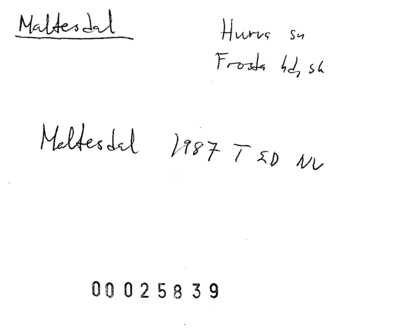 Maltesdal
Hurva sn
Frosta hd, sk
Maltesdal 1987 T ED NL
00025839